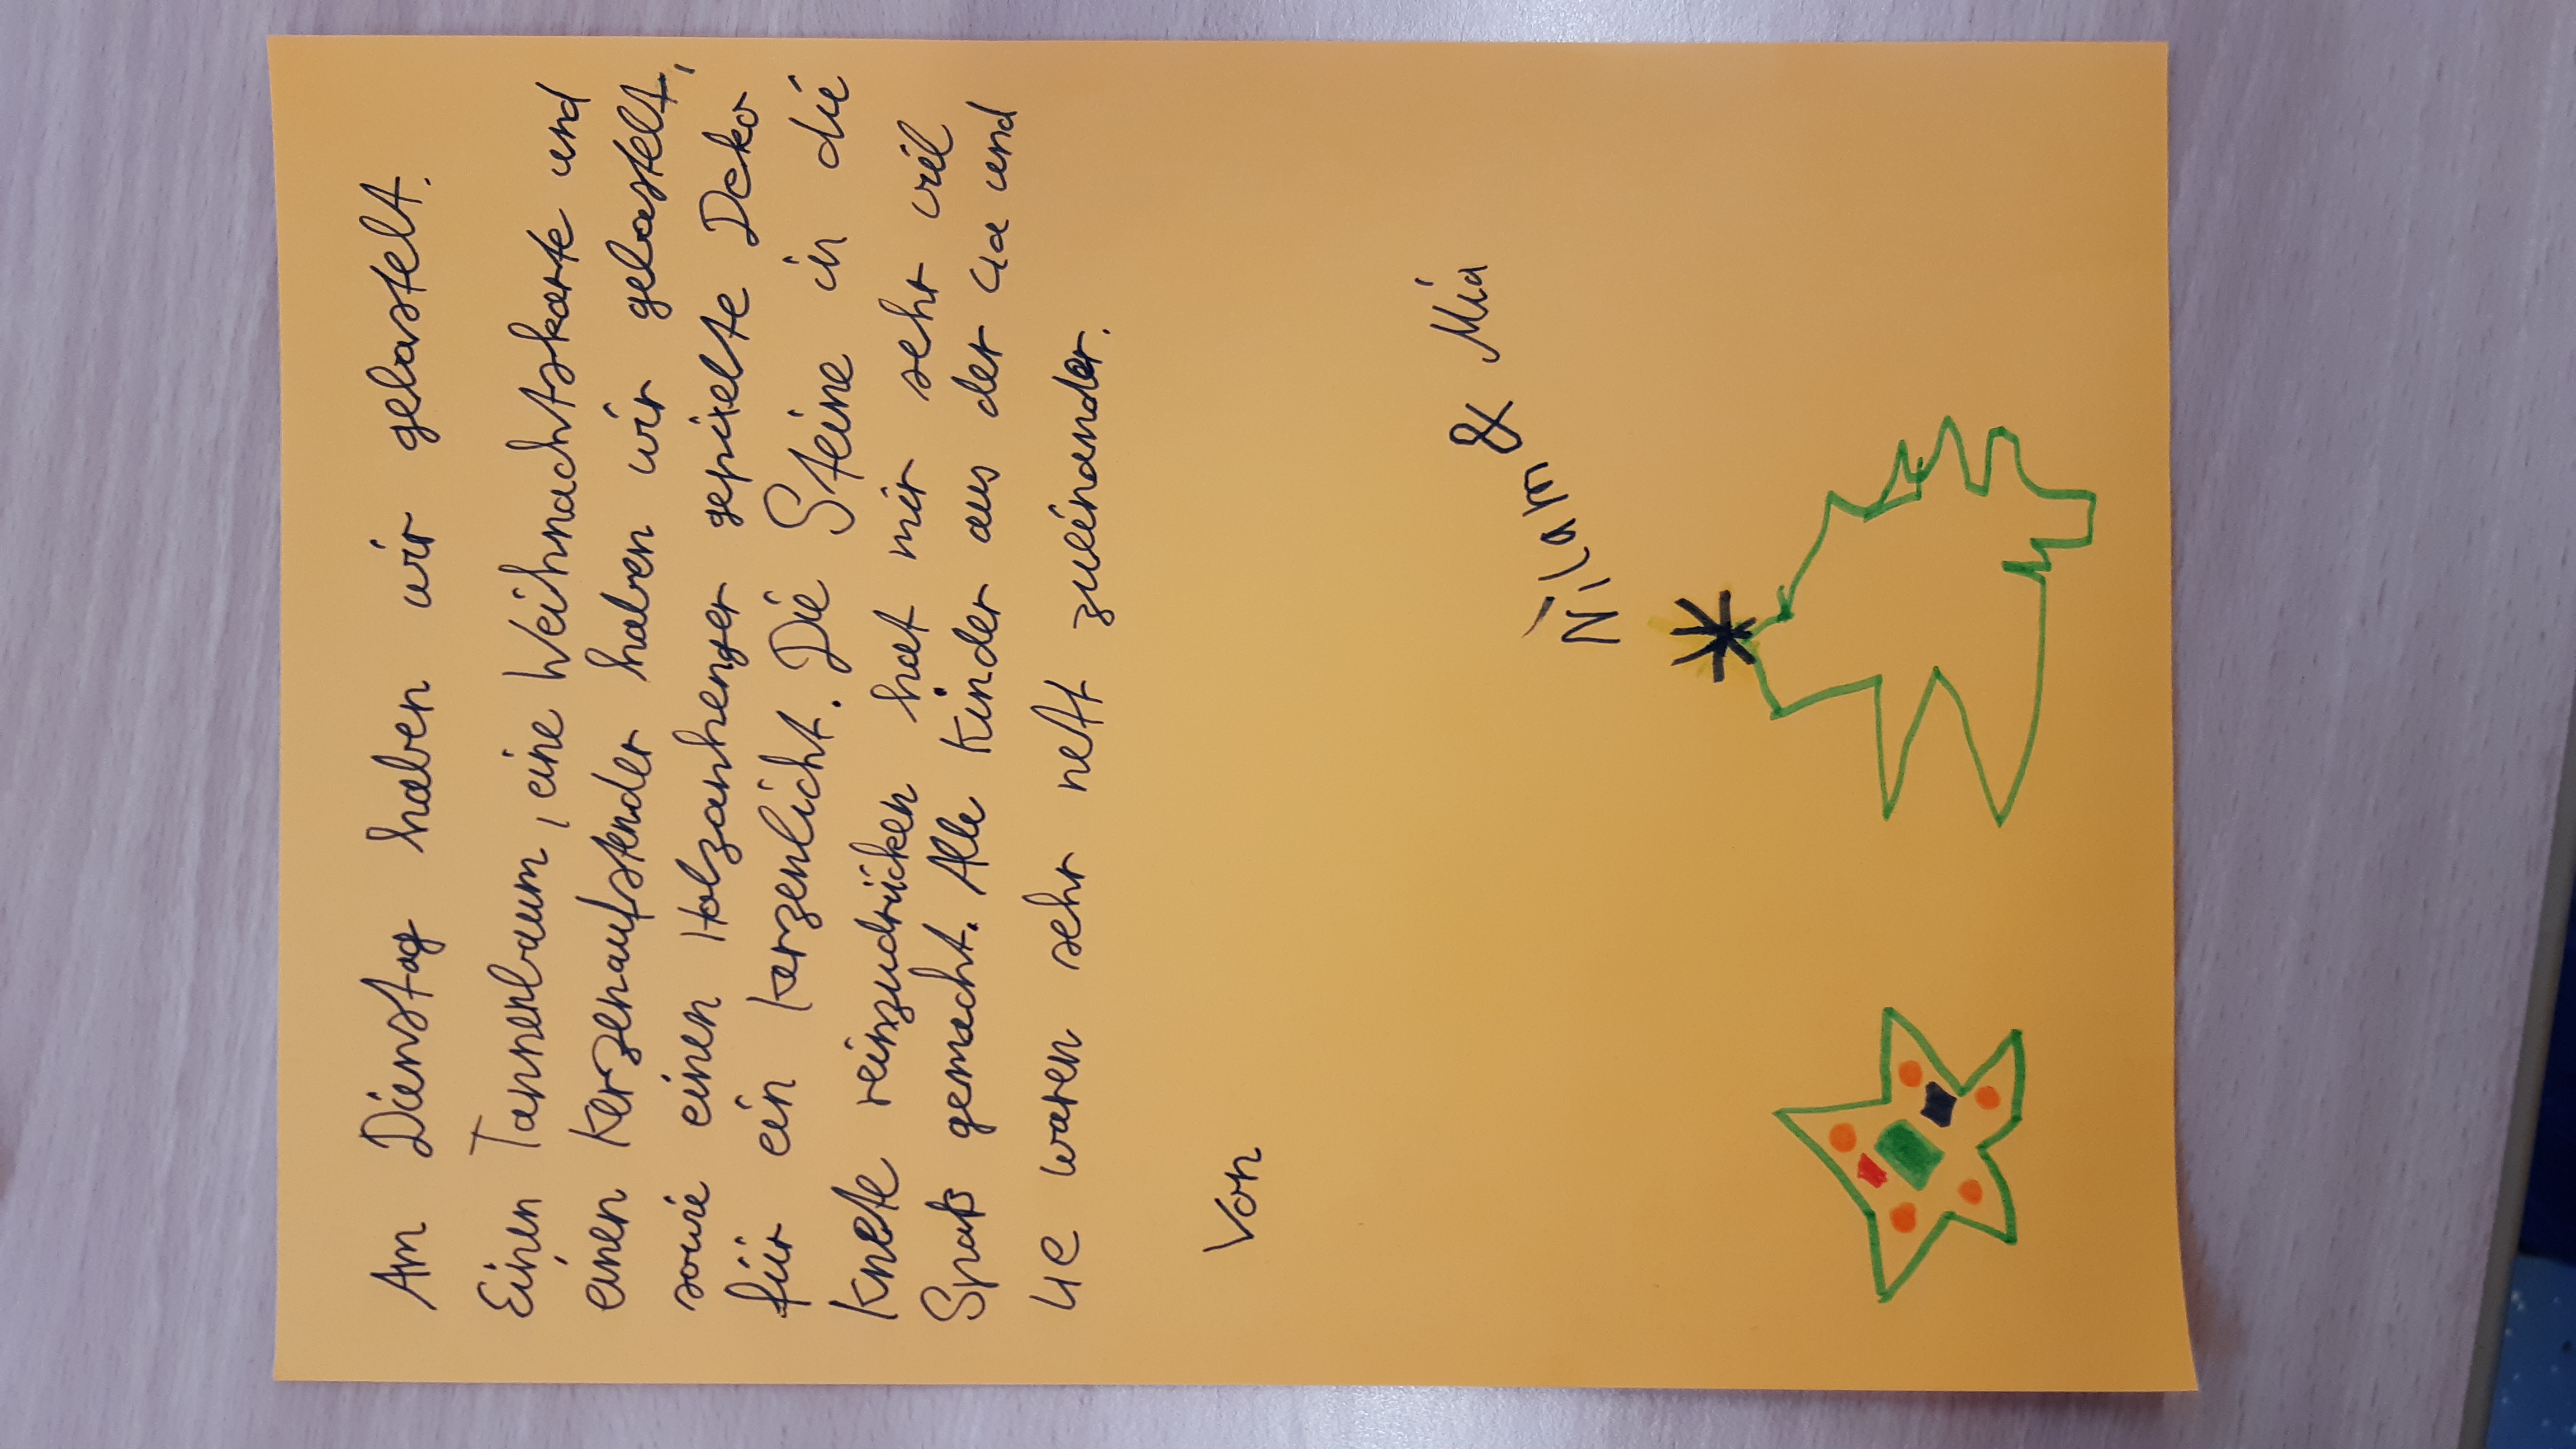 Am Dienstag haben wir gebastelt.
Einen Tannenbaum, eine Weihnachtskarte und
einen Kerzenaufstender haben wir gebastelt,
sowie einen Holzanhenger gepielte Deko
für ein Kerzenlicht. Die Steine in die
Knete reinzudrücken hat mir sehr viel
Spaß gemacht. Alle Kinder aus der 4a und
4e waren sehr nett zueinander.
Von
Nilam & Mia